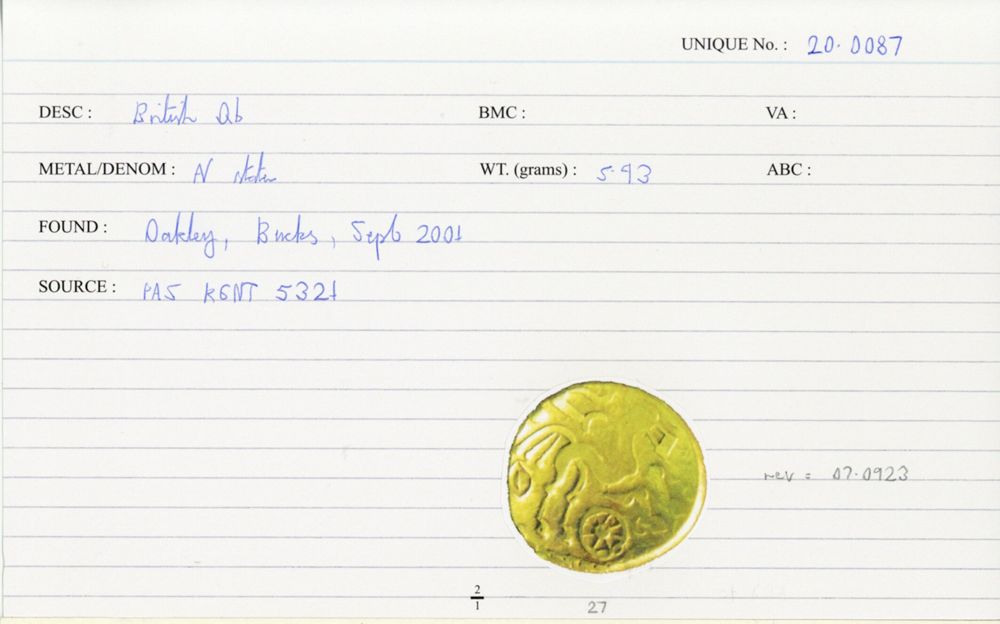 UNIQUE No. : 20.0087
DESC : British Qb BMC : VA :
METAL/DENOM : N stater WT. (grams) : 5.93 ABC :
FOUND : Oakley, Bucks, Sept 2001
SOURCE : PAS KENT 5321
rev = 07.0923
2
1
27